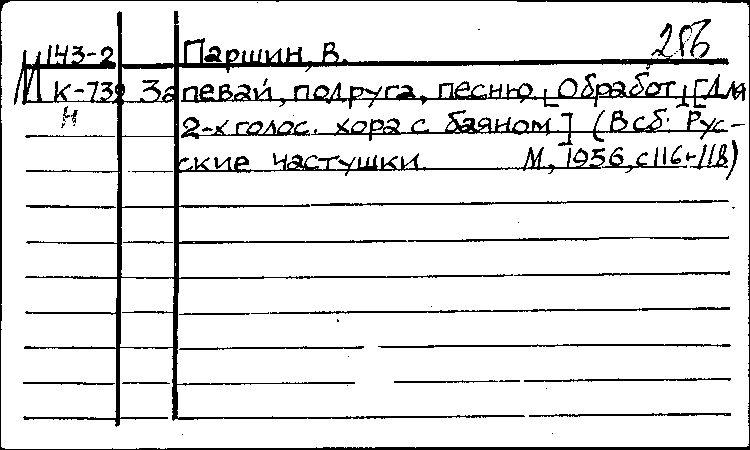 М 143-2 Паршин, В. 286
К-732 Запевай, подруга, песню. [Обработ.] [Для
Н 2-х голос. хора с баяном] (В сб: Рус-
ские частушки. М., 1956, с 116-118)